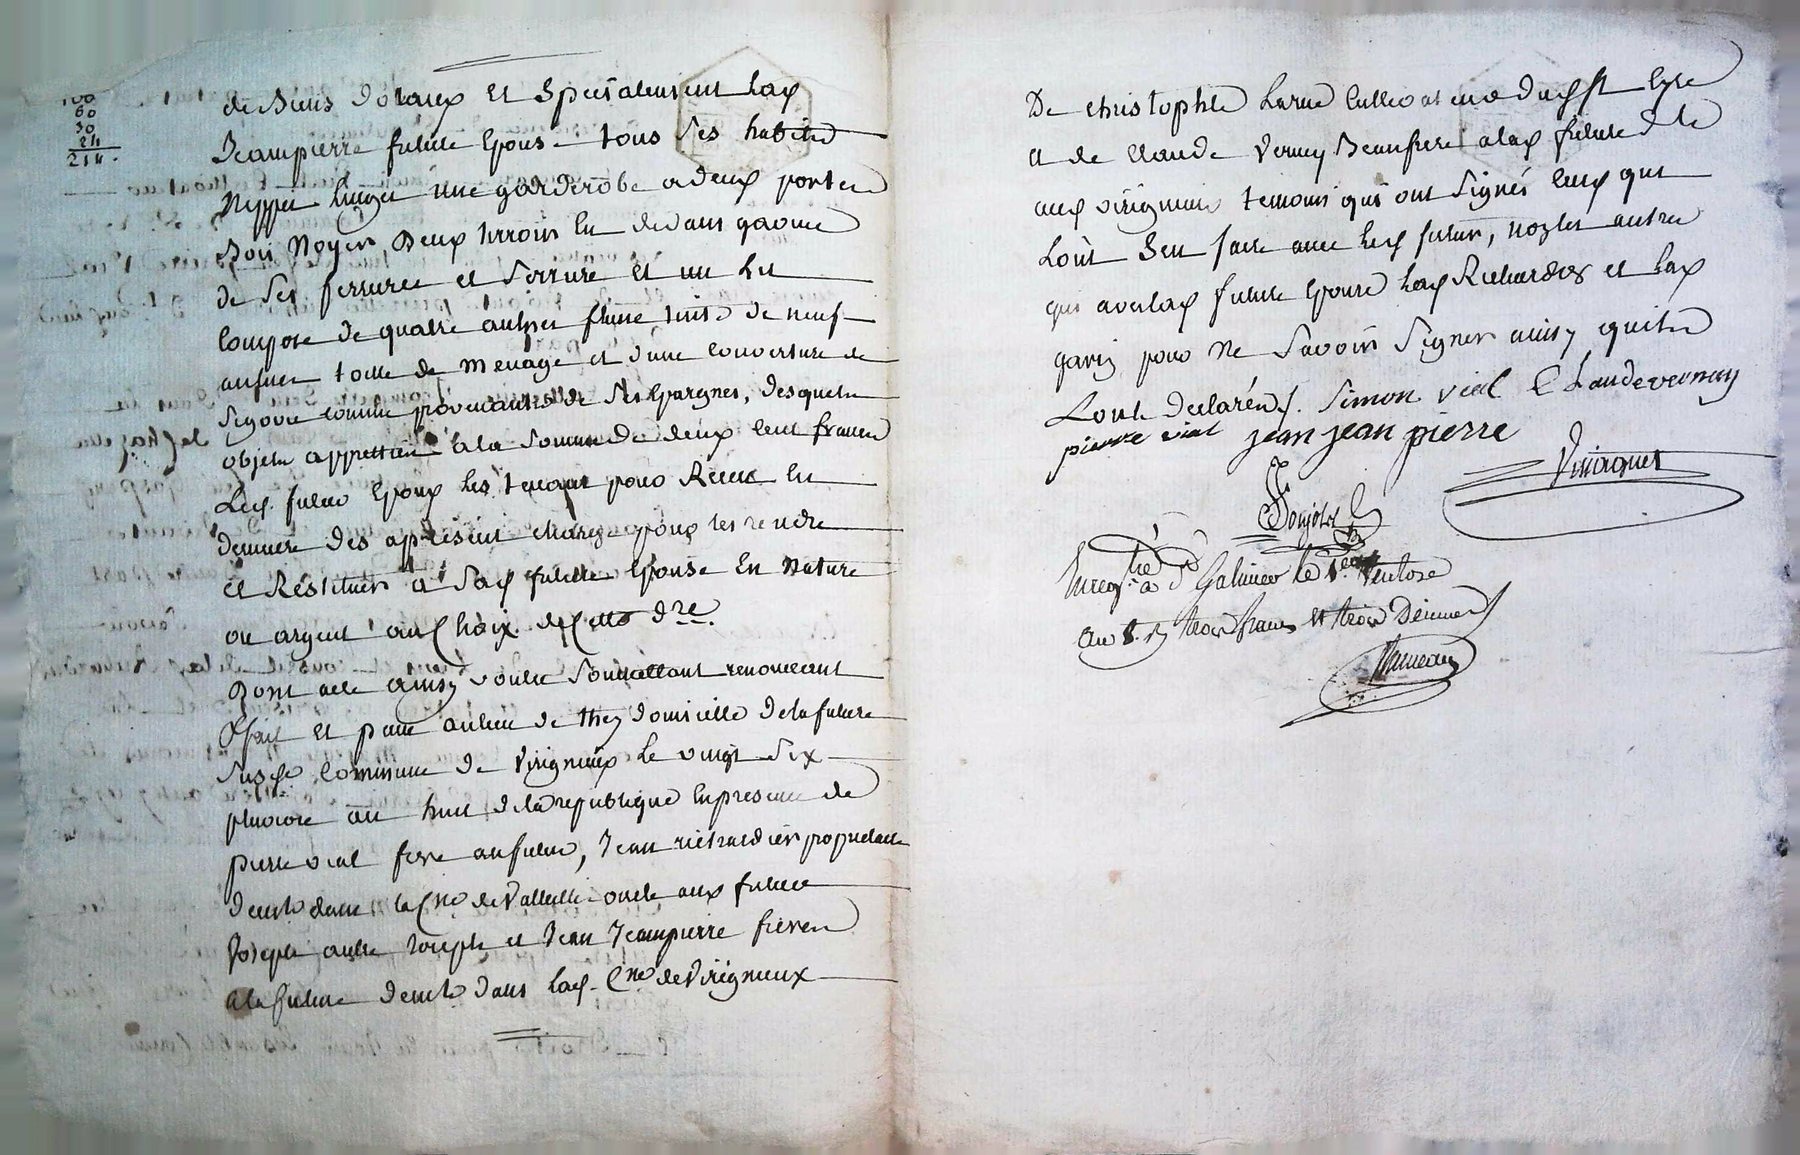 100
60
30
24
214.
de Biens dotaux et Specialement lad
Jeanpierre future Epouse tous ses habits
Nippes linges une garderobe a deux portes
Bois Noyer Deux tirroirs En dedans garnie
de ses ferrures et Serrure et un Lit
Composé de quatre aulnes de neuf
aulnes toille de menage et d'une Couverture de
Segovie comme provenants de ses Epargnes, desquels
objets apprettiés a la Somme de deux Cent francs
Led. futur Epoux les tenant pour Reçus En
demeure dès aprésent chargé pour les rendre
et Restituer a Lad future Epouse En Nature
ou argent au Choix de Cette dre.
Dont acte ainsy voulu Soumettant renonceant
fait et passé au lieu de domicille de la future
susd. Commune de Virigneux le vingt Six
pluviose an huit de la republique En presence de
pierre vial frere au futur, Jean richardier propriétaire
demt. dans la Cne de Valleille oncle aux futurs
Joseph autre Joseph et Jean Jeanpierre freres
a la future demt. dans lad. Cne de Virigneux
De christophle Larue Cultivateur a St Cyre
et de Claude Verney Beaufrere a lad future dt.
aud virigneux temoins qui ont Signés Ceux qui
L'ont Sçu faire avec led futur, non les autres
qui avec lad future Epouse Led Richardier et lad
pour ne Savoir Signer ainsy qu'ils
L'ont declarés. Simon vial Claude vernay
pierre vial jean jean pierre
Enregtré à St Galmier le 1er Ventose
an 8. R trois francs et trois Décimes